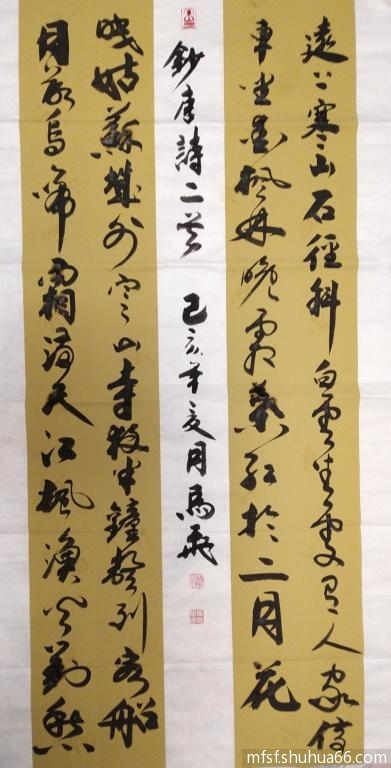 遠上寒山石徑斜白雲生處有人家停
車坐愛楓林晚霜葉紅於二月花
月落烏啼霜滿天江楓漁火對愁
眠姑蘇城外寒山寺夜半鐘聲到客船
鈔唐詩二首 己亥年夏月馬飛
mfsf.shuhua66.com